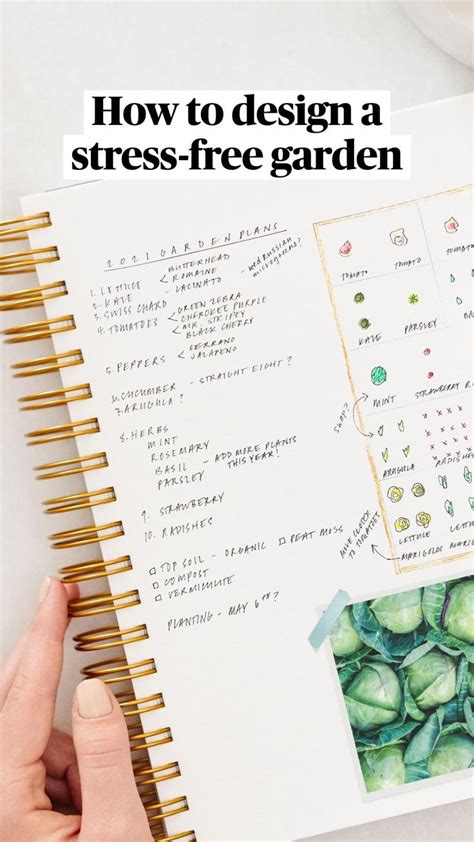 How to design a
stress-free garden
2021 GARDEN PLANS
1. LETTUCE < BUTTERHEAD
ROMAINE
2. KALE - LACINATO
3. SWISS CHARD
4. TOMATOES < GREEN ZEBRA
CHEROKEE PURPLE
MR. STRIPEY
BLACK CHERRY
- RED RUSSIAN
MICROGREENS?
5. PEPPERS < SERRANO
JALAPEÑO
6. CUCUMBER - STRAIGHT EIGHT?
7. ARUGULA?
8. HERBS
MINT
ROSEMARY
BASIL - ADD MORE PLANTS
THIS YEAR!
PARSLEY
9. STRAWBERRY
10. RADISHES
□ TOP SOIL - ORGANIC □ PEAT MOSS
□ COMPOST
□ VERMICULITE
PLANTING - MAY 6TH?
TOMATO TOMATO
KALE PARSLEY
MINT STRAWBERRY
SWAP?
ARUGULA RADISHES
LETTUCE LETTUCE
MARIGOLDS
MOVE CLOSER
TO TOMATOES?